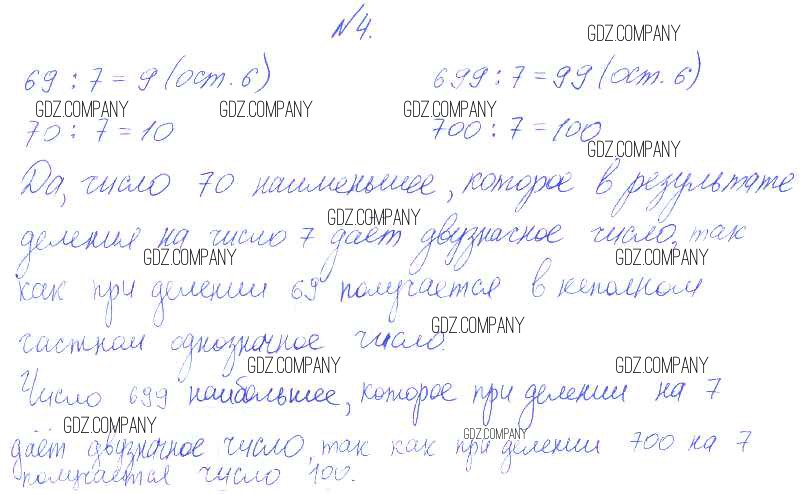 №4.
GDZ.COMPANY
69 : 7 = 9 (ост. 6) 699 : 7 = 99 (ост. 6)
GDZ.COMPANY GDZ.COMPANY GDZ.COMPANY
70 : 7 = 10 700 : 7 = 100
GDZ.COMPANY
Да, число 70 наименьшее, которое в результате
GDZ.COMPANY
деления на число 7 даёт двузначное число, так
GDZ.COMPANY GDZ.COMPANY
как при делении 69 получается в неполном
GDZ.COMPANY
частном однозначное число.
GDZ.COMPANY GDZ.COMPANY
Число 699 наибольшее, которое при делении на 7
GDZ.COMPANY GDZ.COMPANY
даёт двузначное число, так как при делении 700 на 7
получается число 100.